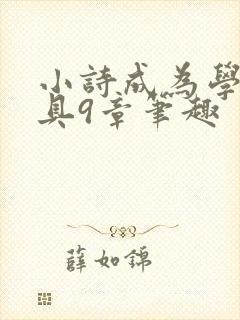 小詩成為學
具9章筆趣
薛如錦